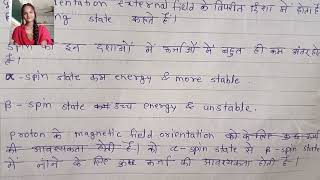 orientation external field के विपरीत दिशा में होता है
state कहते है।
Spin की इन दशाओं में ऊर्जाओं में बहुत ही कम अंतर
α-spin state कम energy & more stable.
β-spin state उच्च energy & unstable.
proton के magnetic field orientation को के लिए कुछ ऊर्जा
की आवश्यकता होती है। को α-spin state से β-spin state
में जाने के लिए कुछ ऊर्जा की आवश्यकता होती है।